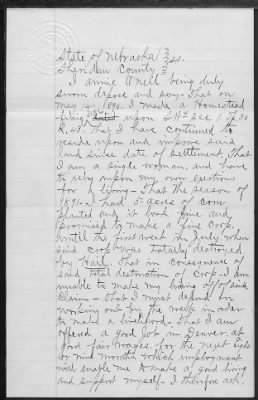 State of Nebraska } ss.
Sheridan County }
I Annie O'Neil being duly
sworn depose and say - That on
May 14 - 1890. I made a Homestead
filing upon SW4 Sec 1. T 30
R. 43. That I have continued to
reside upon and improve said
land since date of settlement, That
I am a single woman, and have
to rely upon my own exertions
for a living - That the season of
1891 - I had 5 acres of corn
planted and it bore fine and
promised to make a fine crop,
until the first week in July when
said crop was totally destroyed
by Hail. That in consequence of
said total destruction of crop - I am
unable to make my living off of said
Claim - that I must depend on
working out by the week in order
to make a livelihood - That I am
offered a good job in Denver, at
good fair wages, for the next eight
or nine months, which employment
will enable me to make a good living
and support myself - I therefore ask